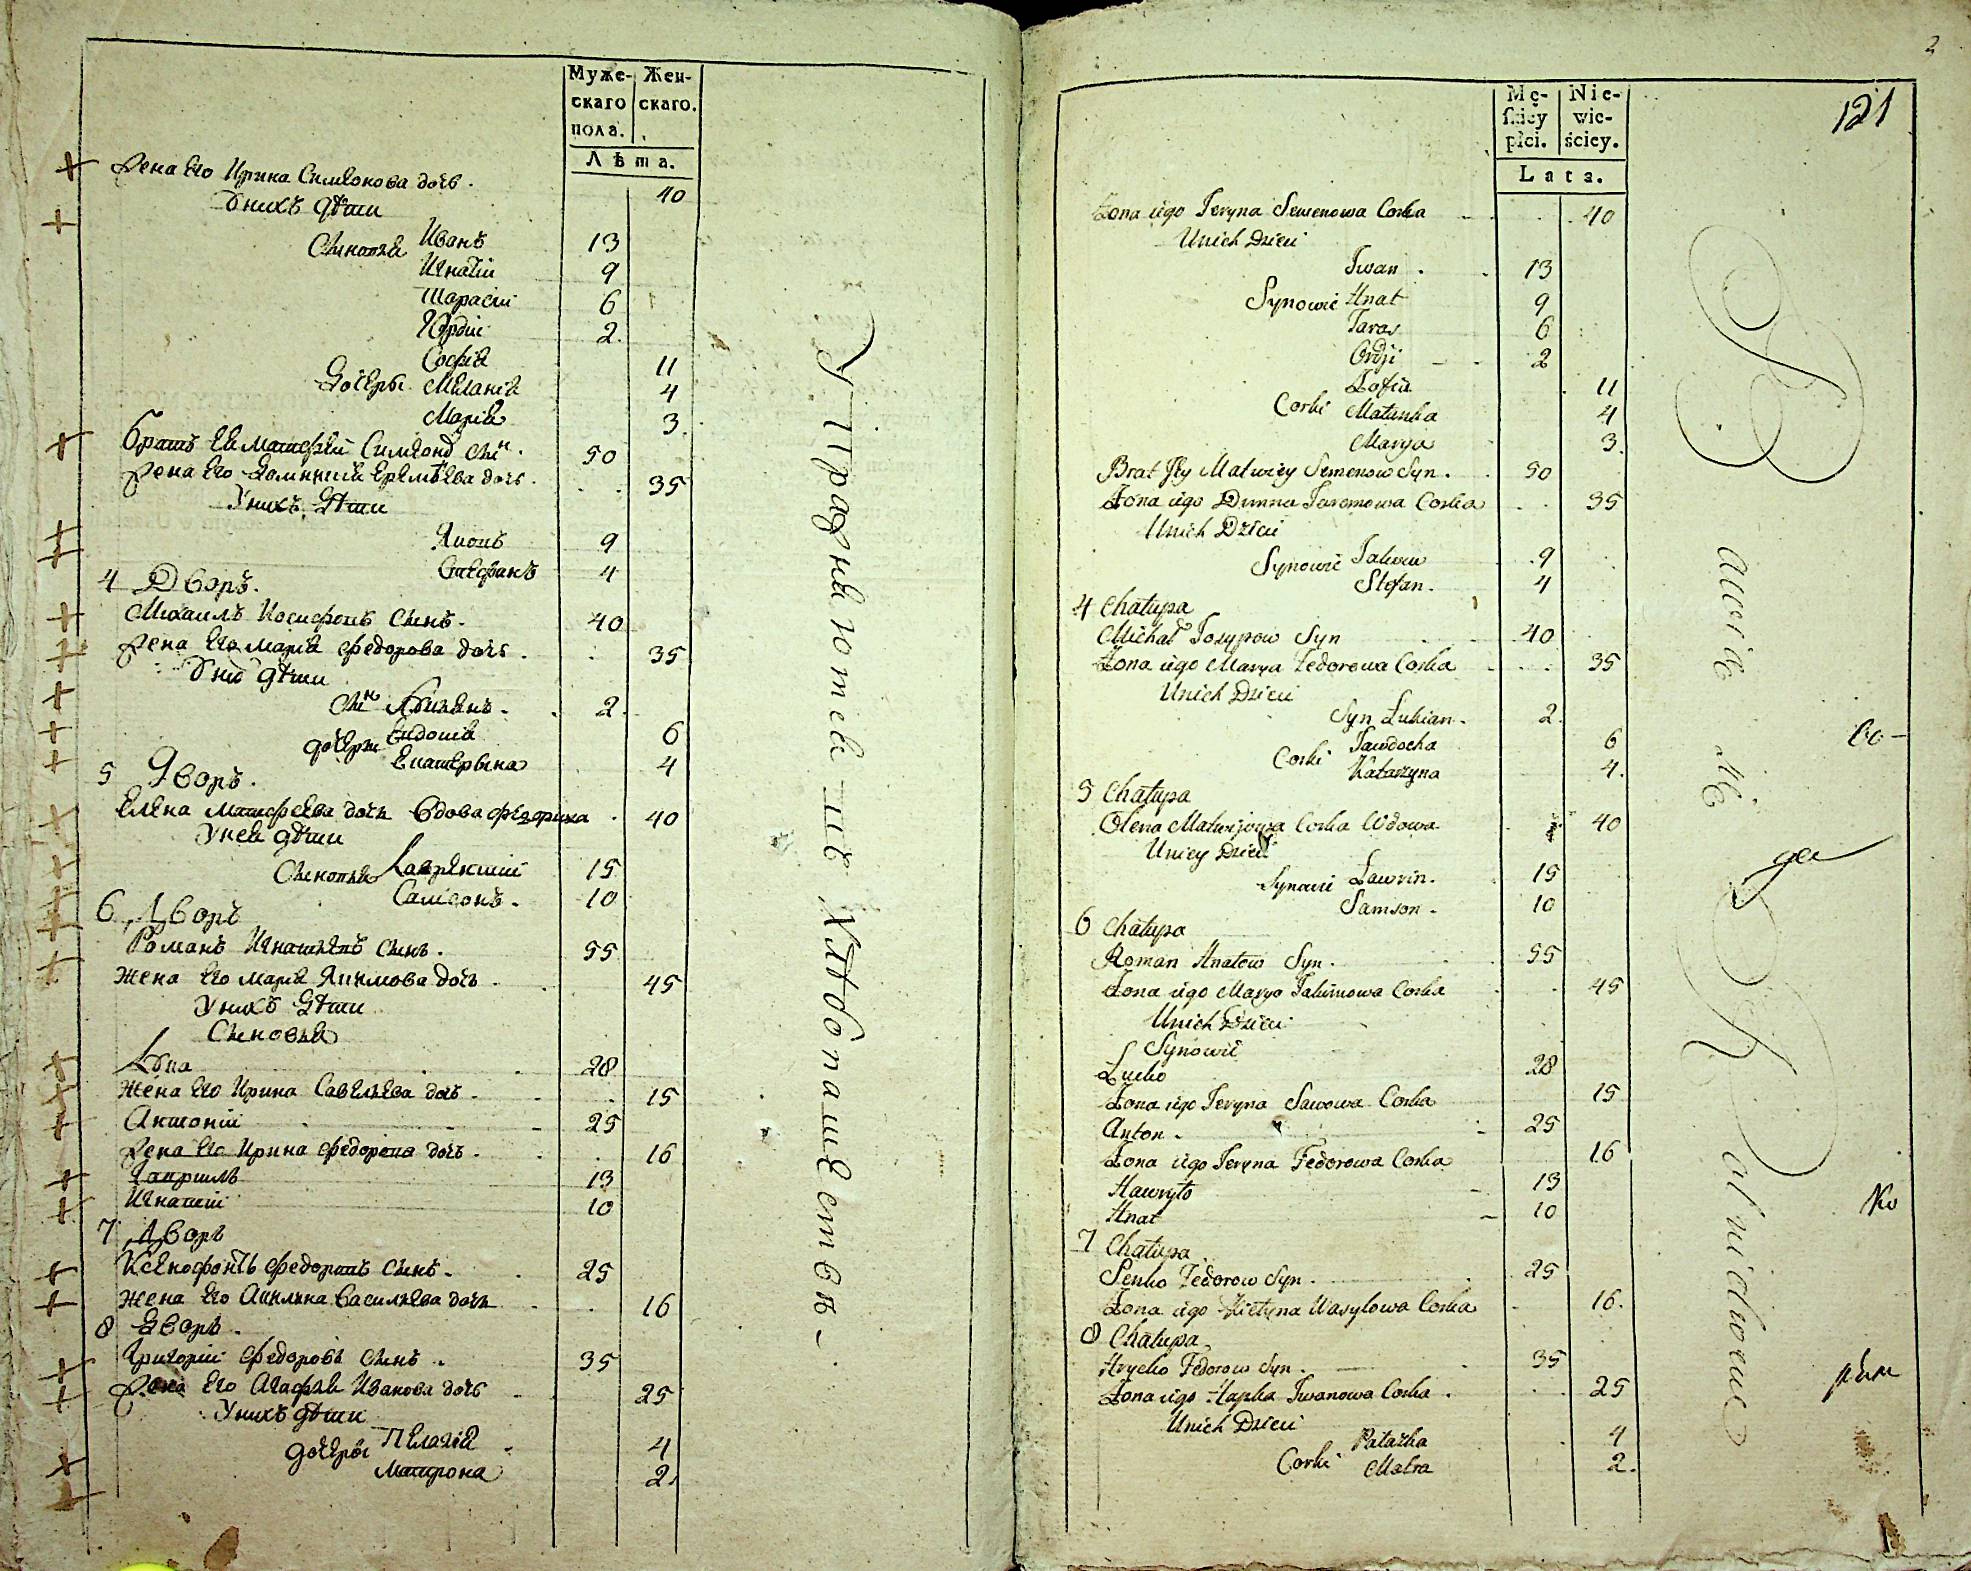 Муже-
скаго
пола.
Жен-
скаго.
Лѣта.
Жена его Ирина Симеонова дочь. 40
У нихъ дѣти
Сыновья Иванъ 13
Игнатій 9
Тарасій 6
Софія 11
Дочери Меланія 4
Марія 3
братъ ей Матфей Симеоновъ сын. 50
Жена его Еремѣева дочь. 35
У нихъ дѣти
Яковъ 9
Стефанъ 4
4 Дворъ.
Михаилъ Иосифовъ сынъ. 40
Жена его Марія Федорова дочь. 35
дѣти
сын Лукіянъ. 2
дочери Евдокія 6
Екатерина 4
5 Дворъ.
Елена Матфеева дочь вдова 40
У ней дѣти
Сыновья Лаврентій 15
Самсонъ. 10
6 Дворъ
Романъ Игнатьевъ сынъ. 55
Жена его Марія Якимова дочь 45
У нихъ дѣти
Сыновья
Лука 28
Жена его Ирина Савельева дочь. 15
Антоній 25
Жена его Ирина Федорова дочь. 16
Гавриилъ 13
Игнатій 10
7 Дворъ
Ксенофонтъ Федоровъ сынъ. 25
Жена его Акилина Васильева дочь 16
8 Дворъ.
Григорій Федоровъ сынъ. 35
Жена его Агафья Иванова дочь 25
У нихъ дѣти
дочери Пелагія 4
Матрона 2.
2
121
Mę-
skiey
płci.
Nie-
wie-
ściey.
Lata.
Zona iego Jeryna Semenowa Corka 40
Unich Dzieci
Iwan 13
Synowie Hnat 9
Taras 6
Ordji 2
Zofia 11
Corki Małanka 4
Marya 3.
Brat Jey Matwiey Semenow Syn. 50
Zona iego Dumna Jaremowa Corka 35
Unich Dzieci
Synowie Jakow 9
Stefan. 4
4 Chałupa
Michał Jozypow Syn 40
Zona iego Marya Fedorowa Corka 35
Unich Dzieci
Syn Lukian. 2.
Jawdocha 6
Corki Katarzyna 4.
5 Chałupa
Olena Matwijowa Corka Wdowa 40
Uniey Dzieci
Synowie Lawrin. 15
Samson. 10
6 Chałupa
Roman Hnatow Syn. 55
Zona iego Marya Jakimowa Corka 45
Unich Dzieci
Synowie
Lucko 28
Zona iego Jeryna Sawowa Corka 15
Anton. 25
Zona iego Jeryna Fedorowa Corka 16
Hawryło 13
Hnat 10
7 Chałupa
Senko Fedorow Syn. 25
Zona iego Wasylowa Corka 16.
8 Chałupa.
Hrycko Fedorow Syn. 35
Zona iego Hapka Iwanowa Corka. 25
Unich Dzieci
Pałażka 4
Corki Matra 2.